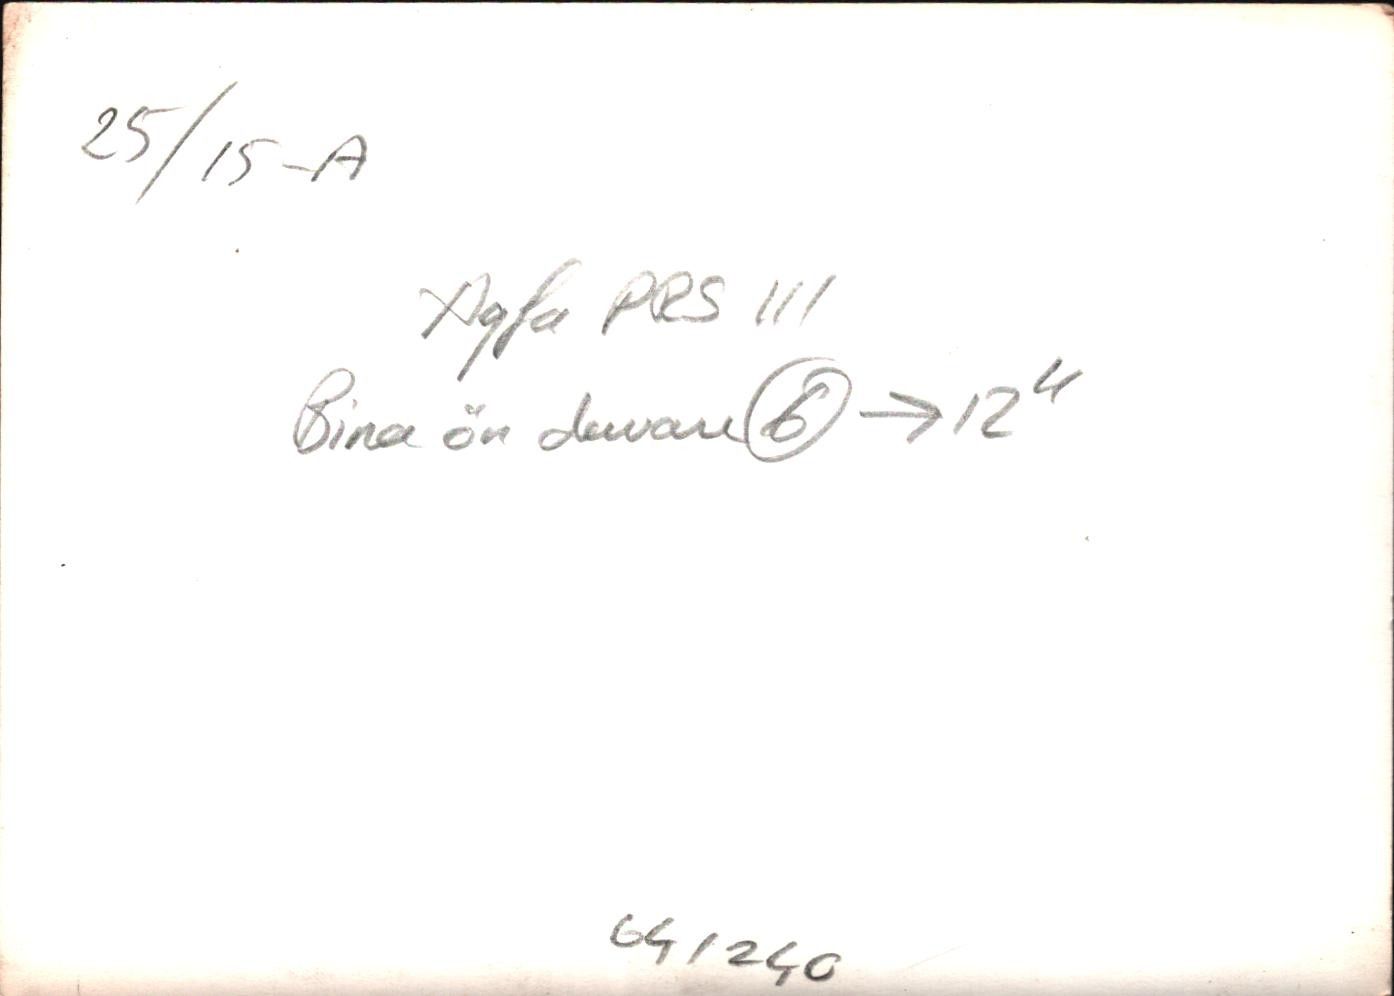 25/15-A
Agfa PRS III
Bina ön duvarı 6 → 12"
641240